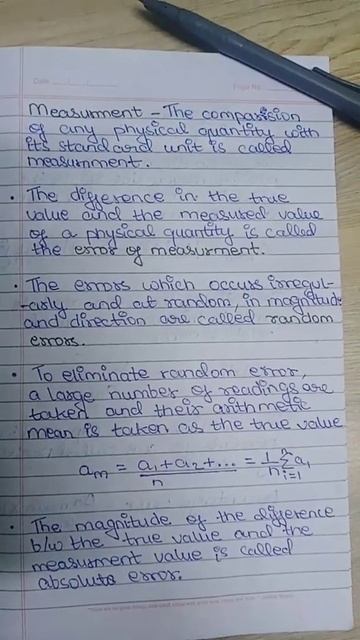 Date
Page No.
Measurment - The comparision
of any physical quantity with
its standard unit is called
measurnment.
• The difference in the true
value and the measured value
of a physical quantity is called
the error of measurment.
• The errors which occurs irregul-
-arly and at random, in magnitude
and direction are called random
errors.
• To eliminate random error,
a large number of readings are
taken and their arithmetic
mean is taken as the true value
am = a1+a2+... / n = 1/n Σ i=1 n a1
• The magnitude of the difference
b/w the true value and the
measurment value is called
absolute error.